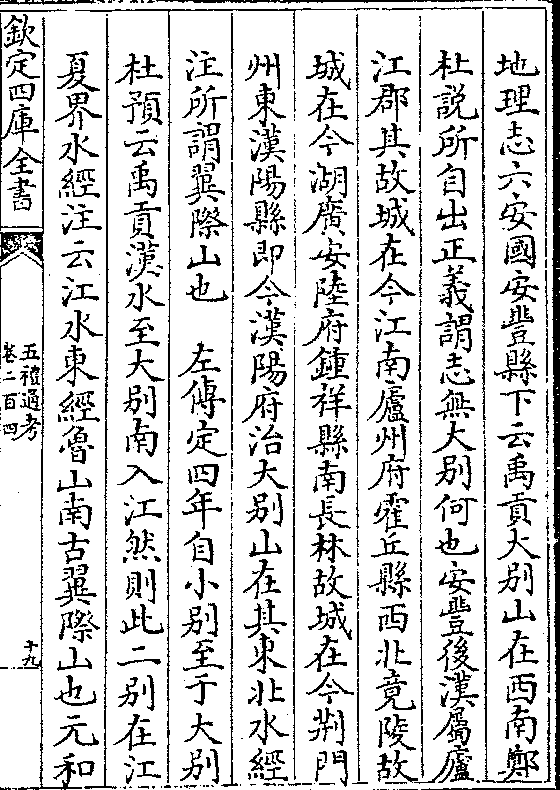 地理志六安國安豐縣下云禹貢大别山在西南鄭
杜説所自出正義謂志無大别何也安豐後漢屬廬
江郡其故城在今江南廬州府霍丘縣西北竟陵故
城在今湖廣安陸府鍾祥縣南長林故城在今荆門
州東漢陽縣即今漢陽府治大别山在其東北水經
注所謂翼際山也　左傳定四年自小别至于大别
杜預云禹貢漢水至大别南入江然則此二别在江
夏界水經注云江水東經魯山南古翼際山也元和
欽定四庫全書
五禮通考
卷二百四
十九